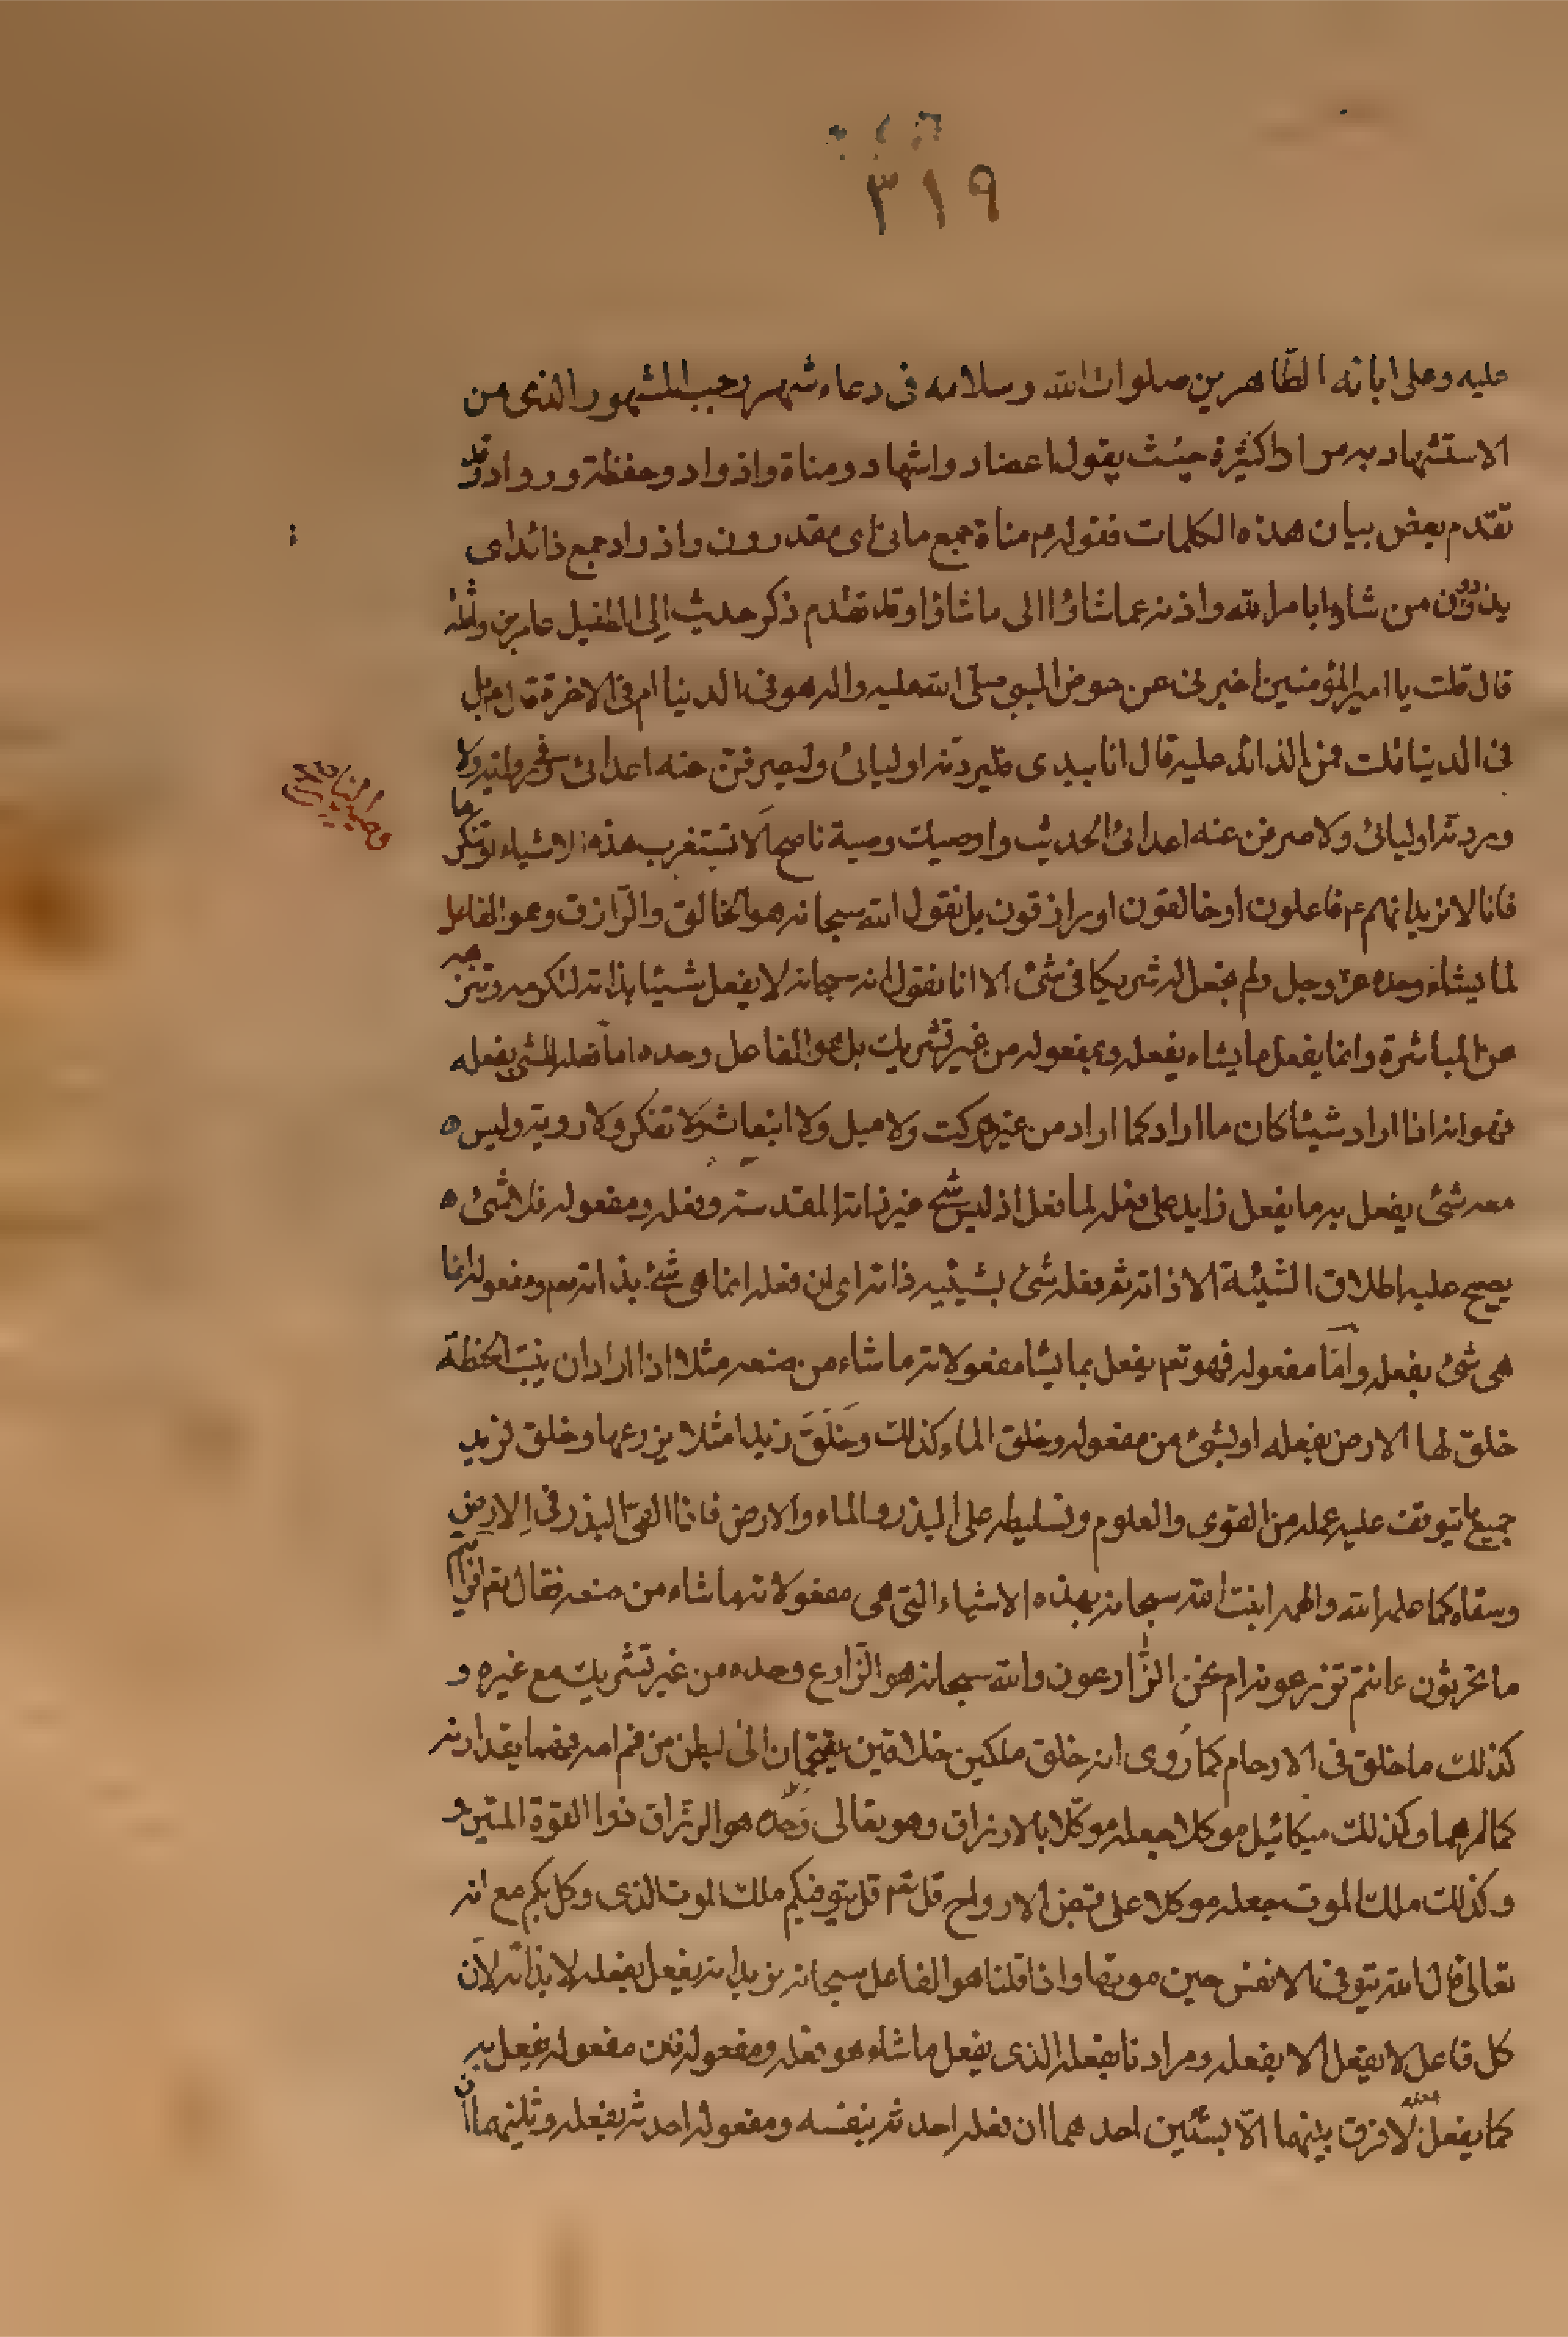 ٣١٩
عليه وعلى ابائه الطاهرين صلوات الله وسلامه فى دعاء شهر رجب المشهور الذى من
الاستشهاد به مرارا كثيرة حيث يقول اعضاد واشهاد ومناة واذواد وحفظة ورواد وقد
تقدم بعض بيان هذه الكلمات فقوله ع مناة جمع مانئ اى مقدرون واذواد جمع ذائد اى
يذودون من شاوا بامر الله واذنه عما شاؤا الى ما شاؤا وقد تقدم ذكر حديث ابى الطفيل عامر بن واثلة
قال قلت يا امير المؤمنين اخبرنى عن حوض النبى صلى الله عليه واله هو فى الدنيا ام فى الاخرة قال بل
فى الدنيا قلت فمن الذائد عليه قال انا بيدى فليردنه اوليائى وليصرفن عنه اعدائى وفى رواية ولا
وردنه اوليائى ولاصرفن عنه اعدائى الحديث واوصيك وصية ناصح لا تستغرب هذه الاشياء وتنكرها
وصية الناصح
فانا لا نريد انهم ع فاعلون او خالقون او رازقون بل نقول الله سبحانه هو الخالق والرازق وهو الفاعل
لما يشاء وحده عز وجل ولم نجعل له شريكا فى شئ الا انا نقول انه سبحانه لا يفعل شيئا بذاته لتكرمه وتنزهه
عن المباشرة وانما يفعل ما يشاء بفعله وبمفعوله من غير تشريك بل هو الفاعل وحده اما فعله الشئ بفعله
فهو انه اذا اراد شيئا كان ما اراد كما اراد من غير حركت ولا ميل ولا انبعاث ولا تفكر ولا روية وليس
معه شئ يفعل به ما يفعل زايد على فعله لما فعل اذ ليس شئ غير ذاته المقدسة وفعله ومفعوله فلا شئ
يصح عليه اطلاق الشيئة الا ذاته ثم فعله شئ بشيئية ذاته اى ان فعله انما هى شئ بذاته تع ومفعوله انما
هى شئ بفعله واما مفعوله فهو تع يفعل بما يشا مفعولاته ما شاء من صنعه مثلا اذا اراد ان ينبت الحنطة
خلق لها الارض بفعله او بشئ من مفعوله وخلق الماء كذلك وخلق زيدا مثلا يزرعها وخلق لزيد
جميع ما يتوقف عليه عمله من القوى والعلوم وتسليطه على البذر والماء والارض فاذا القى البذر فى الارض
وسقاه كما علمه الله والهمه انبت الله سبحانه بهذه الاشياء التى هى مفعولاته ما شاء من صنعه فقال تع افرايتم
ما تحرثون ءانتم تزرعونه ام نحن الزارعون والله سبحانه هو الزارع وحده من غير تشريك مع غيره و
كذلك ما خلق فى الارحام كما روى انه خلق ملكين خلاقين يقتحمان الى البطن من فم امه فهما يقدارنه
كما امرهما وكذلك ميكائيل موكلا جعله موكلا بالارزاق وهو تعالى وحده هو الرزاق ذوا القوة المتين و
وكذلك ملك الموت جعله موكلا على قبض الارواح قال تع قل يتوفيكم ملك الموت الذى وكل بكم مع انه
تعالى قال الله يتوفى الانفس حين موتها واذا قلنا هو الفاعل سبحانه نريد انه يفعل بفعله لا بذاته لان
كل فاعل لا يفعل الا بفعله ومرادنا بفعله الذى يفعل ما شاء هو فعله ومفعوله فان مفعوله يفعل به
كما يفعل بفعله لا فرق بينهما الا بشيئين احدهما ان فعله احدثه بنفسه ومفعوله احدثه بفعله وثانيهما ان